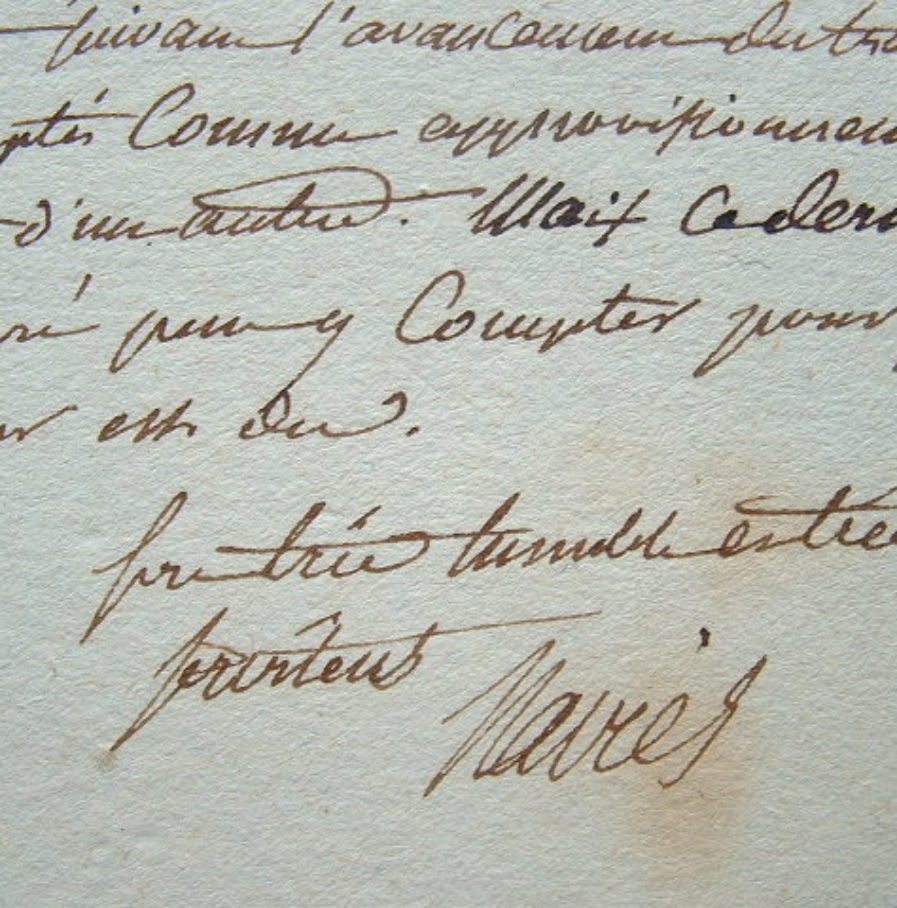 suivant l'avancement du tra
ptés Comme approvisionnem
d'un autre. Mais ce dern
ré pour y Compter pour
est du.
tres humble et tres
serviteur